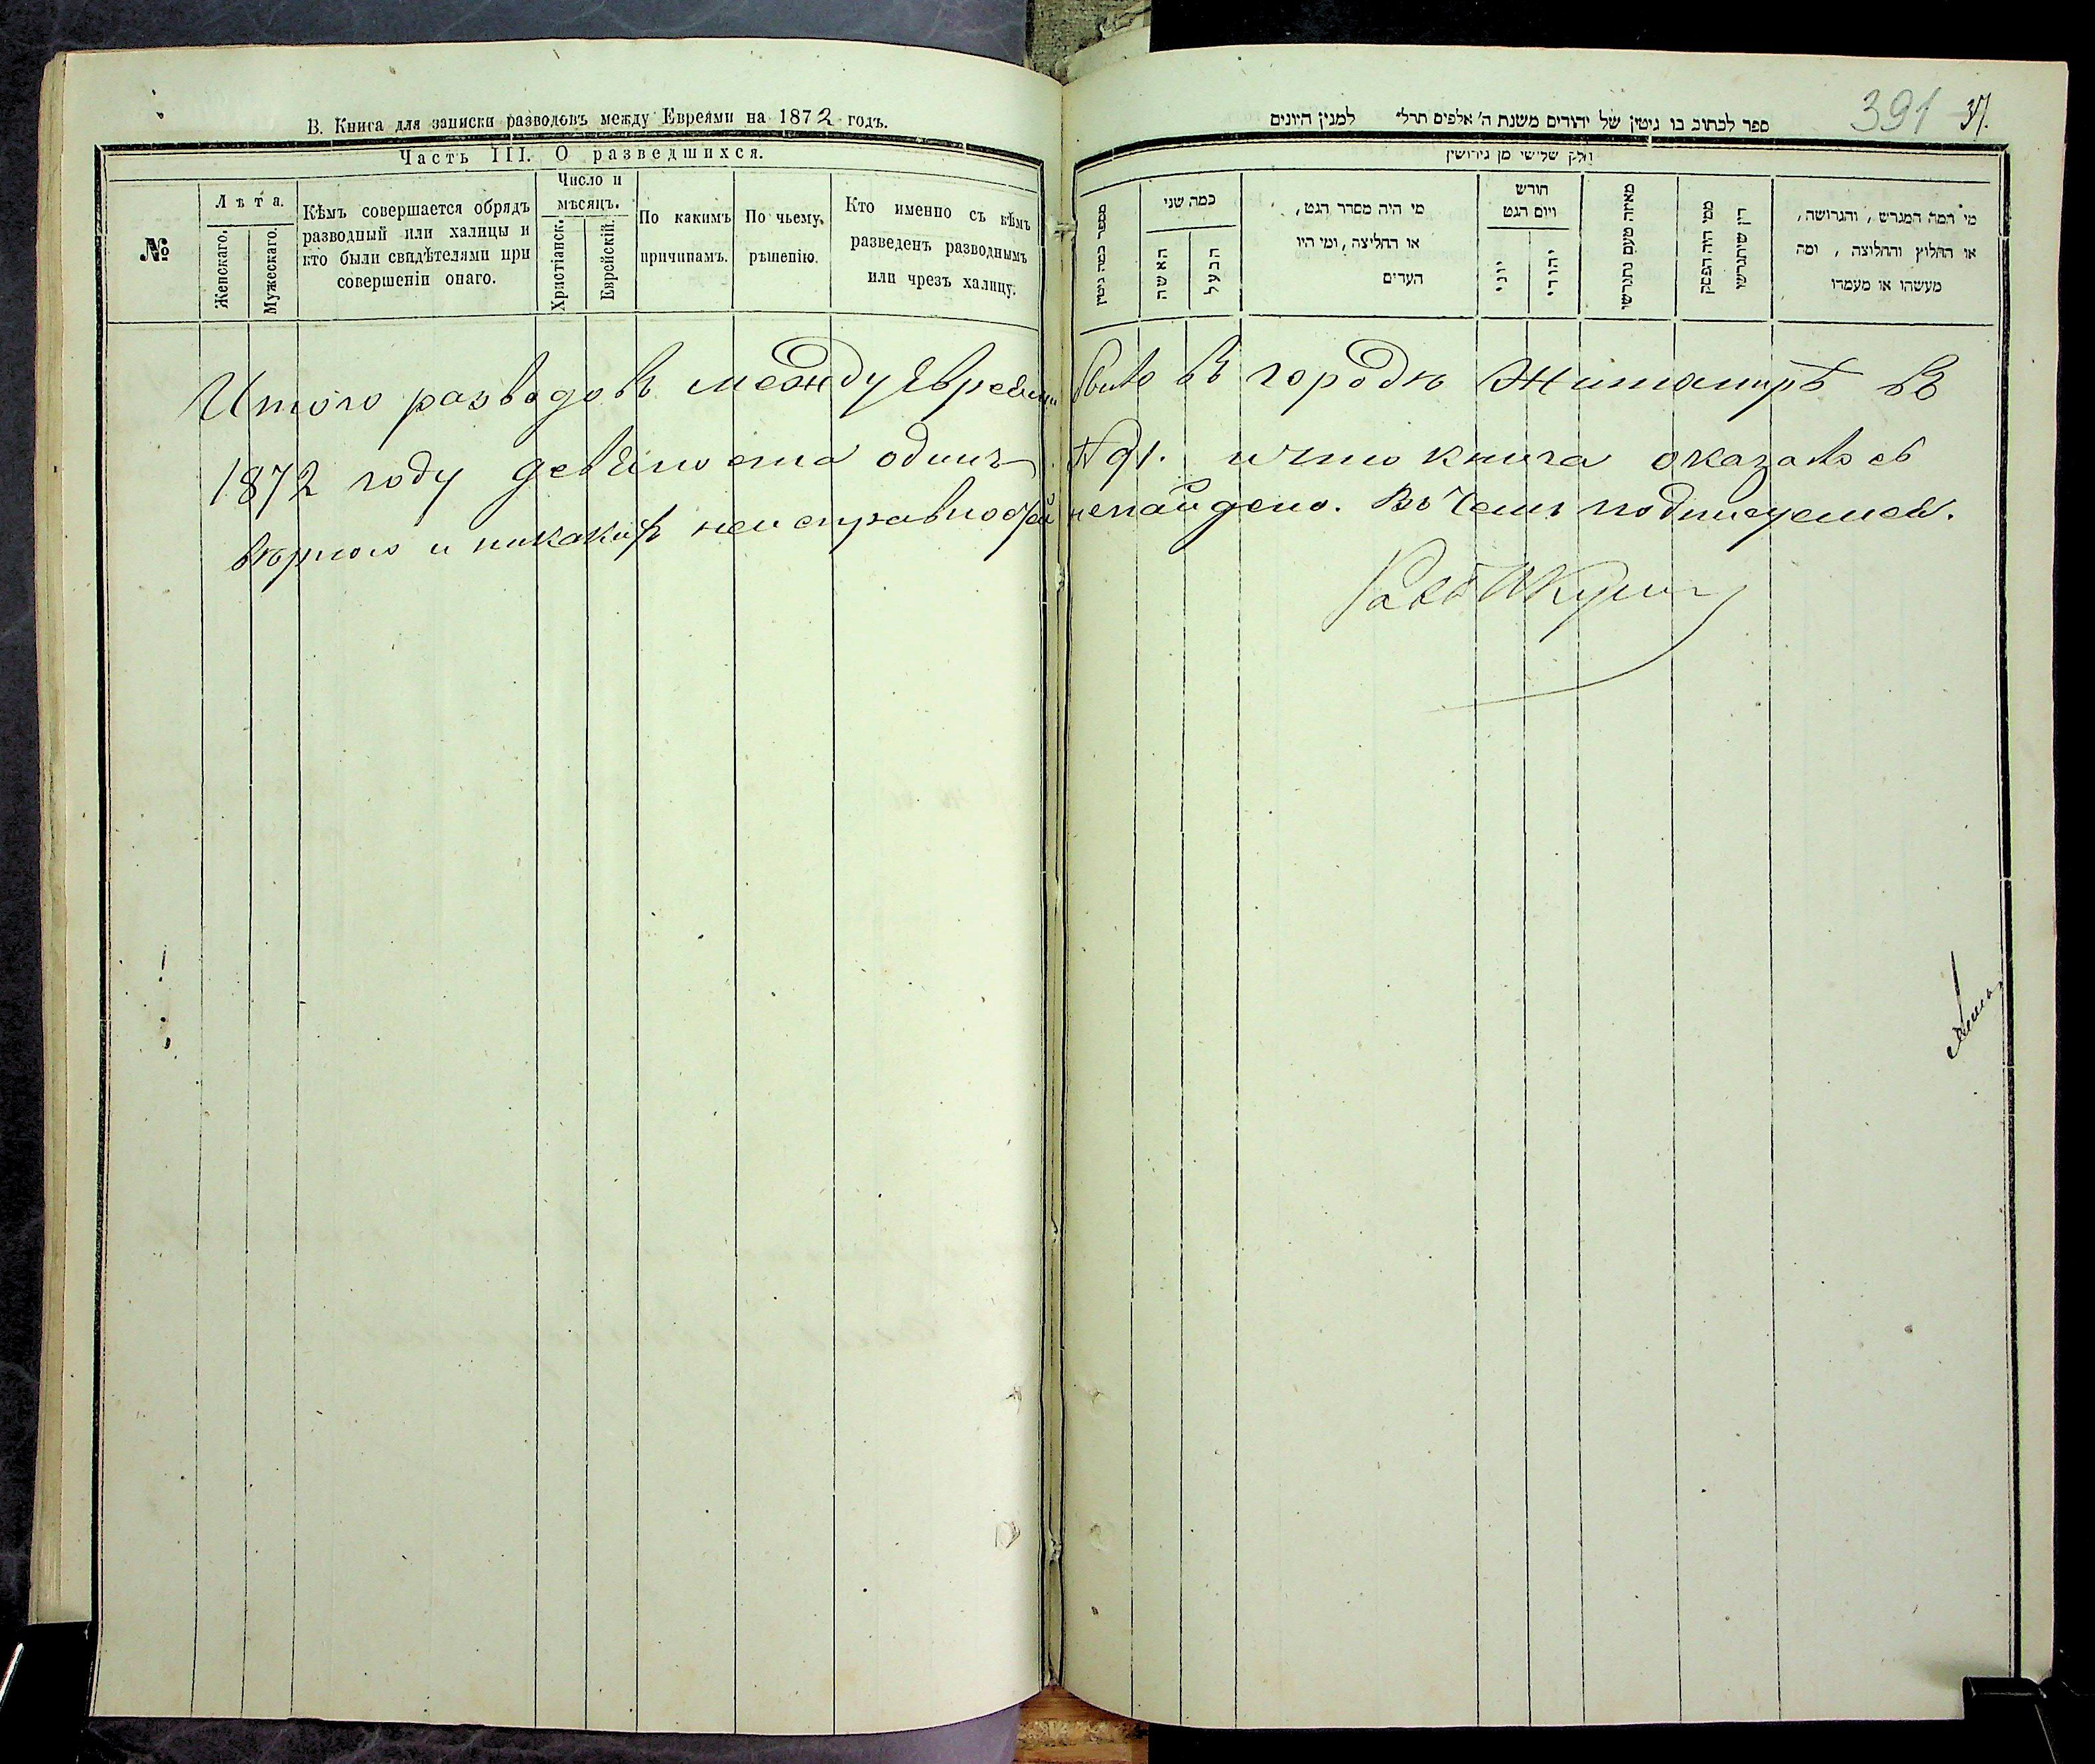 В. Книга для записки разводовъ между Евреями на 1872 годъ.
Часть III. О разведшихся.
№
Лѣта.
Женскаго.
Мужескаго.
Кѣмъ совершается обрядъ
разводный или халицы и
кто были свидѣтелями при
совершеніи онаго.
Число и
мѣсяцъ.
Христіанск.
Еврейскій.
По какимъ
причинамъ.
По чьему
рѣшенію.
Кто именно съ кѣмъ
разведенъ разводнымъ
или чрезъ халицу.
391 37.
ספר לכתוב בו גיטין של יהודים משנת ה' אלפים תרל" למנין היונים
חלק שלישי מן גירושין
מספר כמה גיטין
כמה שני
האשה
הבעל
מי היה מסדר הגט,
או החליצה, ומי היו
העדים
חודש
ויום הגט
יוני
יהודי
מאיזה טעם נתגרשו
ממי היה הפסק
דין שיתגרשו
מי המה המגרש, והגרושה,
או החלוץ והחליצה, ומה
מעשהו או מעמדו
Итого разводовъ между Евреями было въ городѣ Житомірѣ въ
1872 году девяносто одинъ № 91. и что книга оказалось
вѣрною и никакихъ неисправностей ненайдено. Въ чемъ подписуемся.